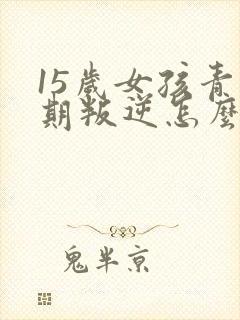 15歲女孩青
期叛逆怎麼
鬼半京